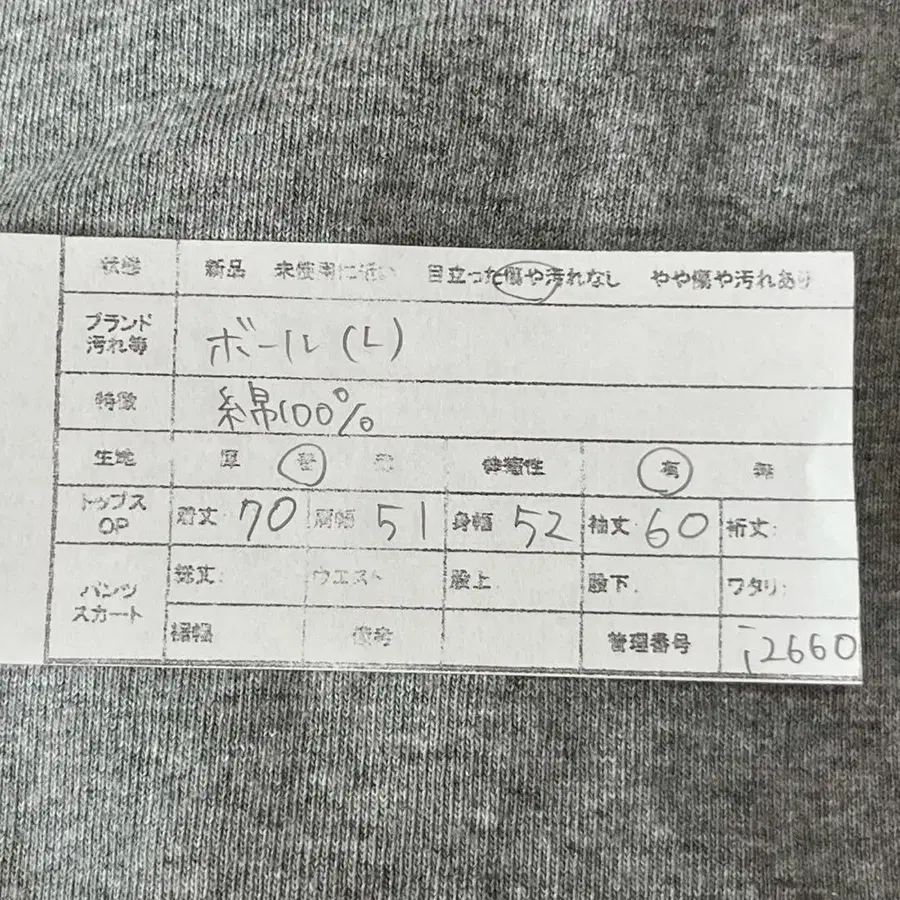 状態 新品 未使用に近い 目立った傷や汚れなし やや傷や汚れあり
ブランド
汚れ等 ボール(L)
特徴 綿100%
生地 厚 普 薄 伸縮性 有 無
トップス
OP 着丈: 70 肩幅 51 身幅 52 袖丈: 60 裄丈:
パンツ
スカート 総丈: ウエスト 股上 股下: ワタリ:
裾幅 備考 管理番号 i2660